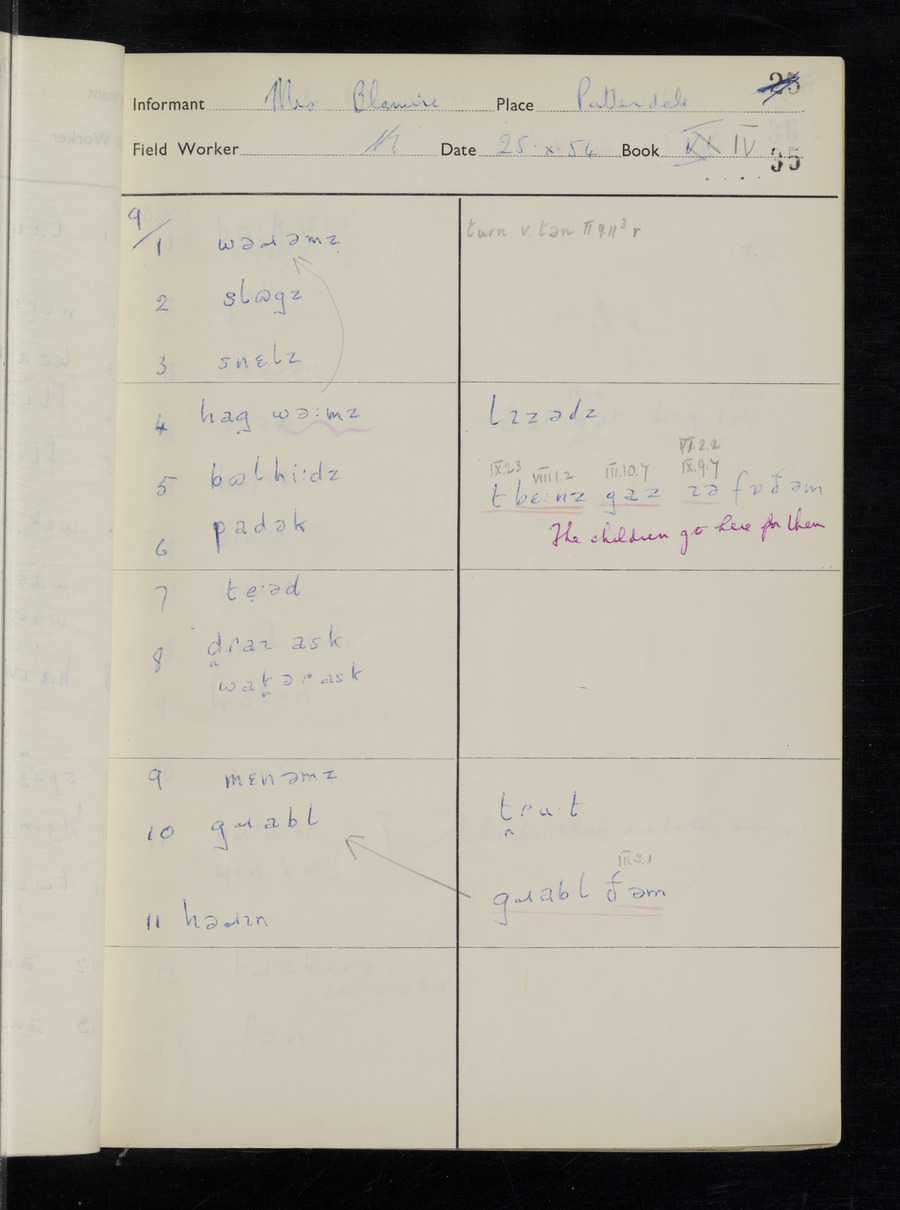 Informant Mrs Blamire Place Patterdale 25
Field Worker Date 25.x.54 Book VI IV 35
9/1 wəɹəmz turn v. tən II.9.11³ r
2 slɷgz
3 snɛlz
4 hag wə:mz lɪzədz
5 bɷlhi:dz
IX.2.3 VIII.1.2 III.10.7 VI.2.2 IX.9.7
t bɛ:nz gaz ɪə fɒ ðəm
6 padək
The children go here for them
7 te̞:əd
8 dɾaɪ ask
watəɾ ask
9 mɛnəmz
tɾu:t
10 gɹabl
III.3.1
gɹabl ðəm
11 həɹɪn